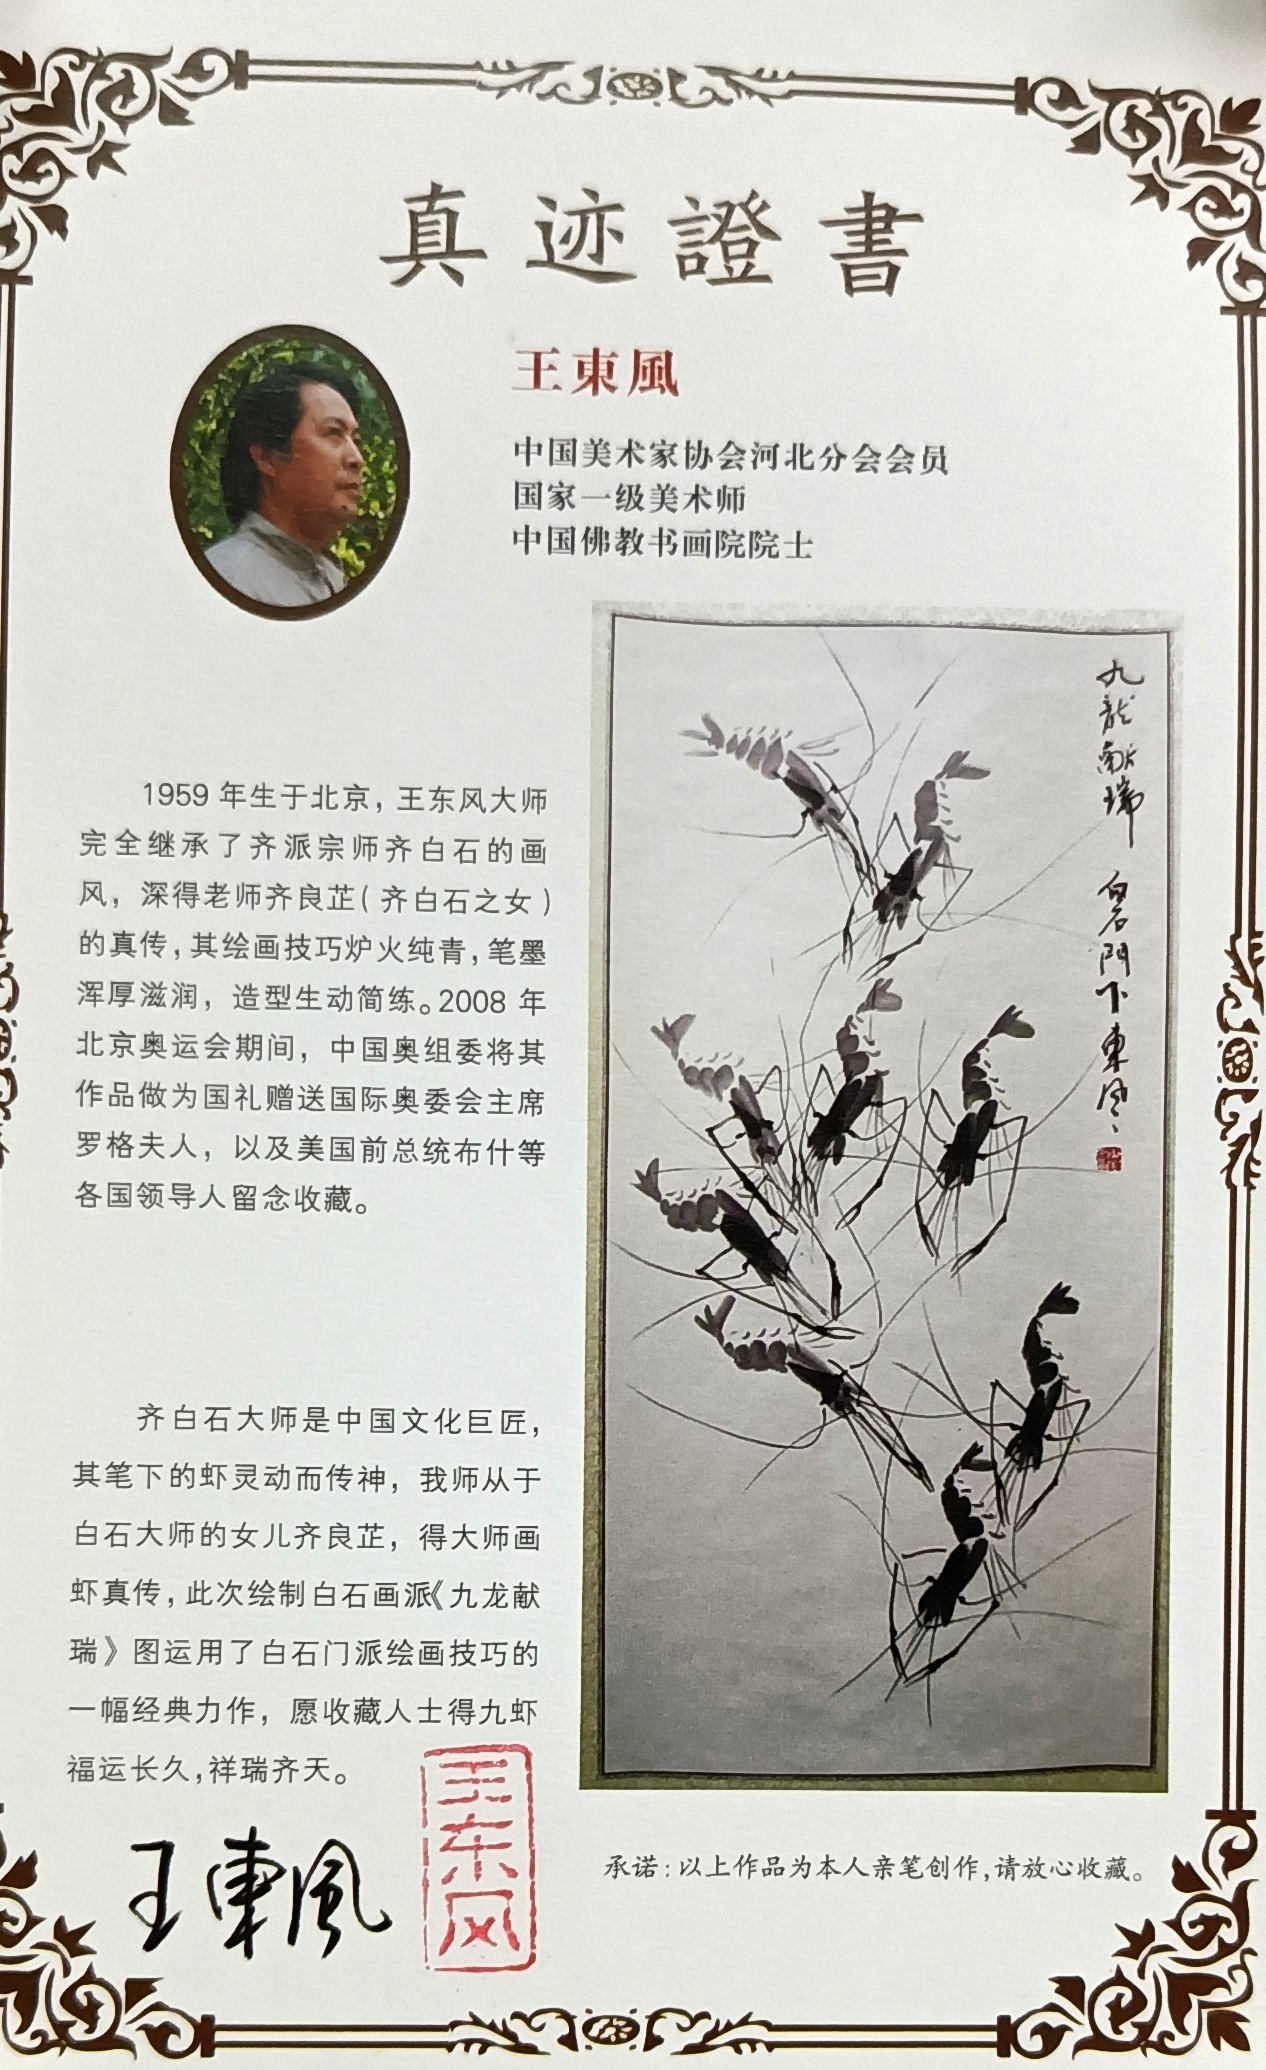 真迹證書
王東風
中国美术家协会河北分会会员
国家一级美术师
中国佛教书画院院士
1959 年生于北京，王东风大师
完全继承了齐派宗师齐白石的画
风，深得老师齐良芷（齐白石之女）
的真传，其绘画技巧炉火纯青，笔墨
浑厚滋润，造型生动简练。2008 年
北京奥运会期间，中国奥组委将其
作品做为国礼赠送国际奥委会主席
罗格夫人，以及美国前总统布什等
各国领导人留念收藏。
九龍献瑞 白石門下東风
齐白石大师是中国文化巨匠，
其笔下的虾灵动而传神，我师从于
白石大师的女儿齐良芷，得大师画
虾真传，此次绘制白石画派《九龙献
瑞》图运用了白石门派绘画技巧的
一幅经典力作，愿收藏人士得九虾
福运长久，祥瑞齐天。
王東風
王东风
承诺：以上作品为本人亲笔创作，请放心收藏。